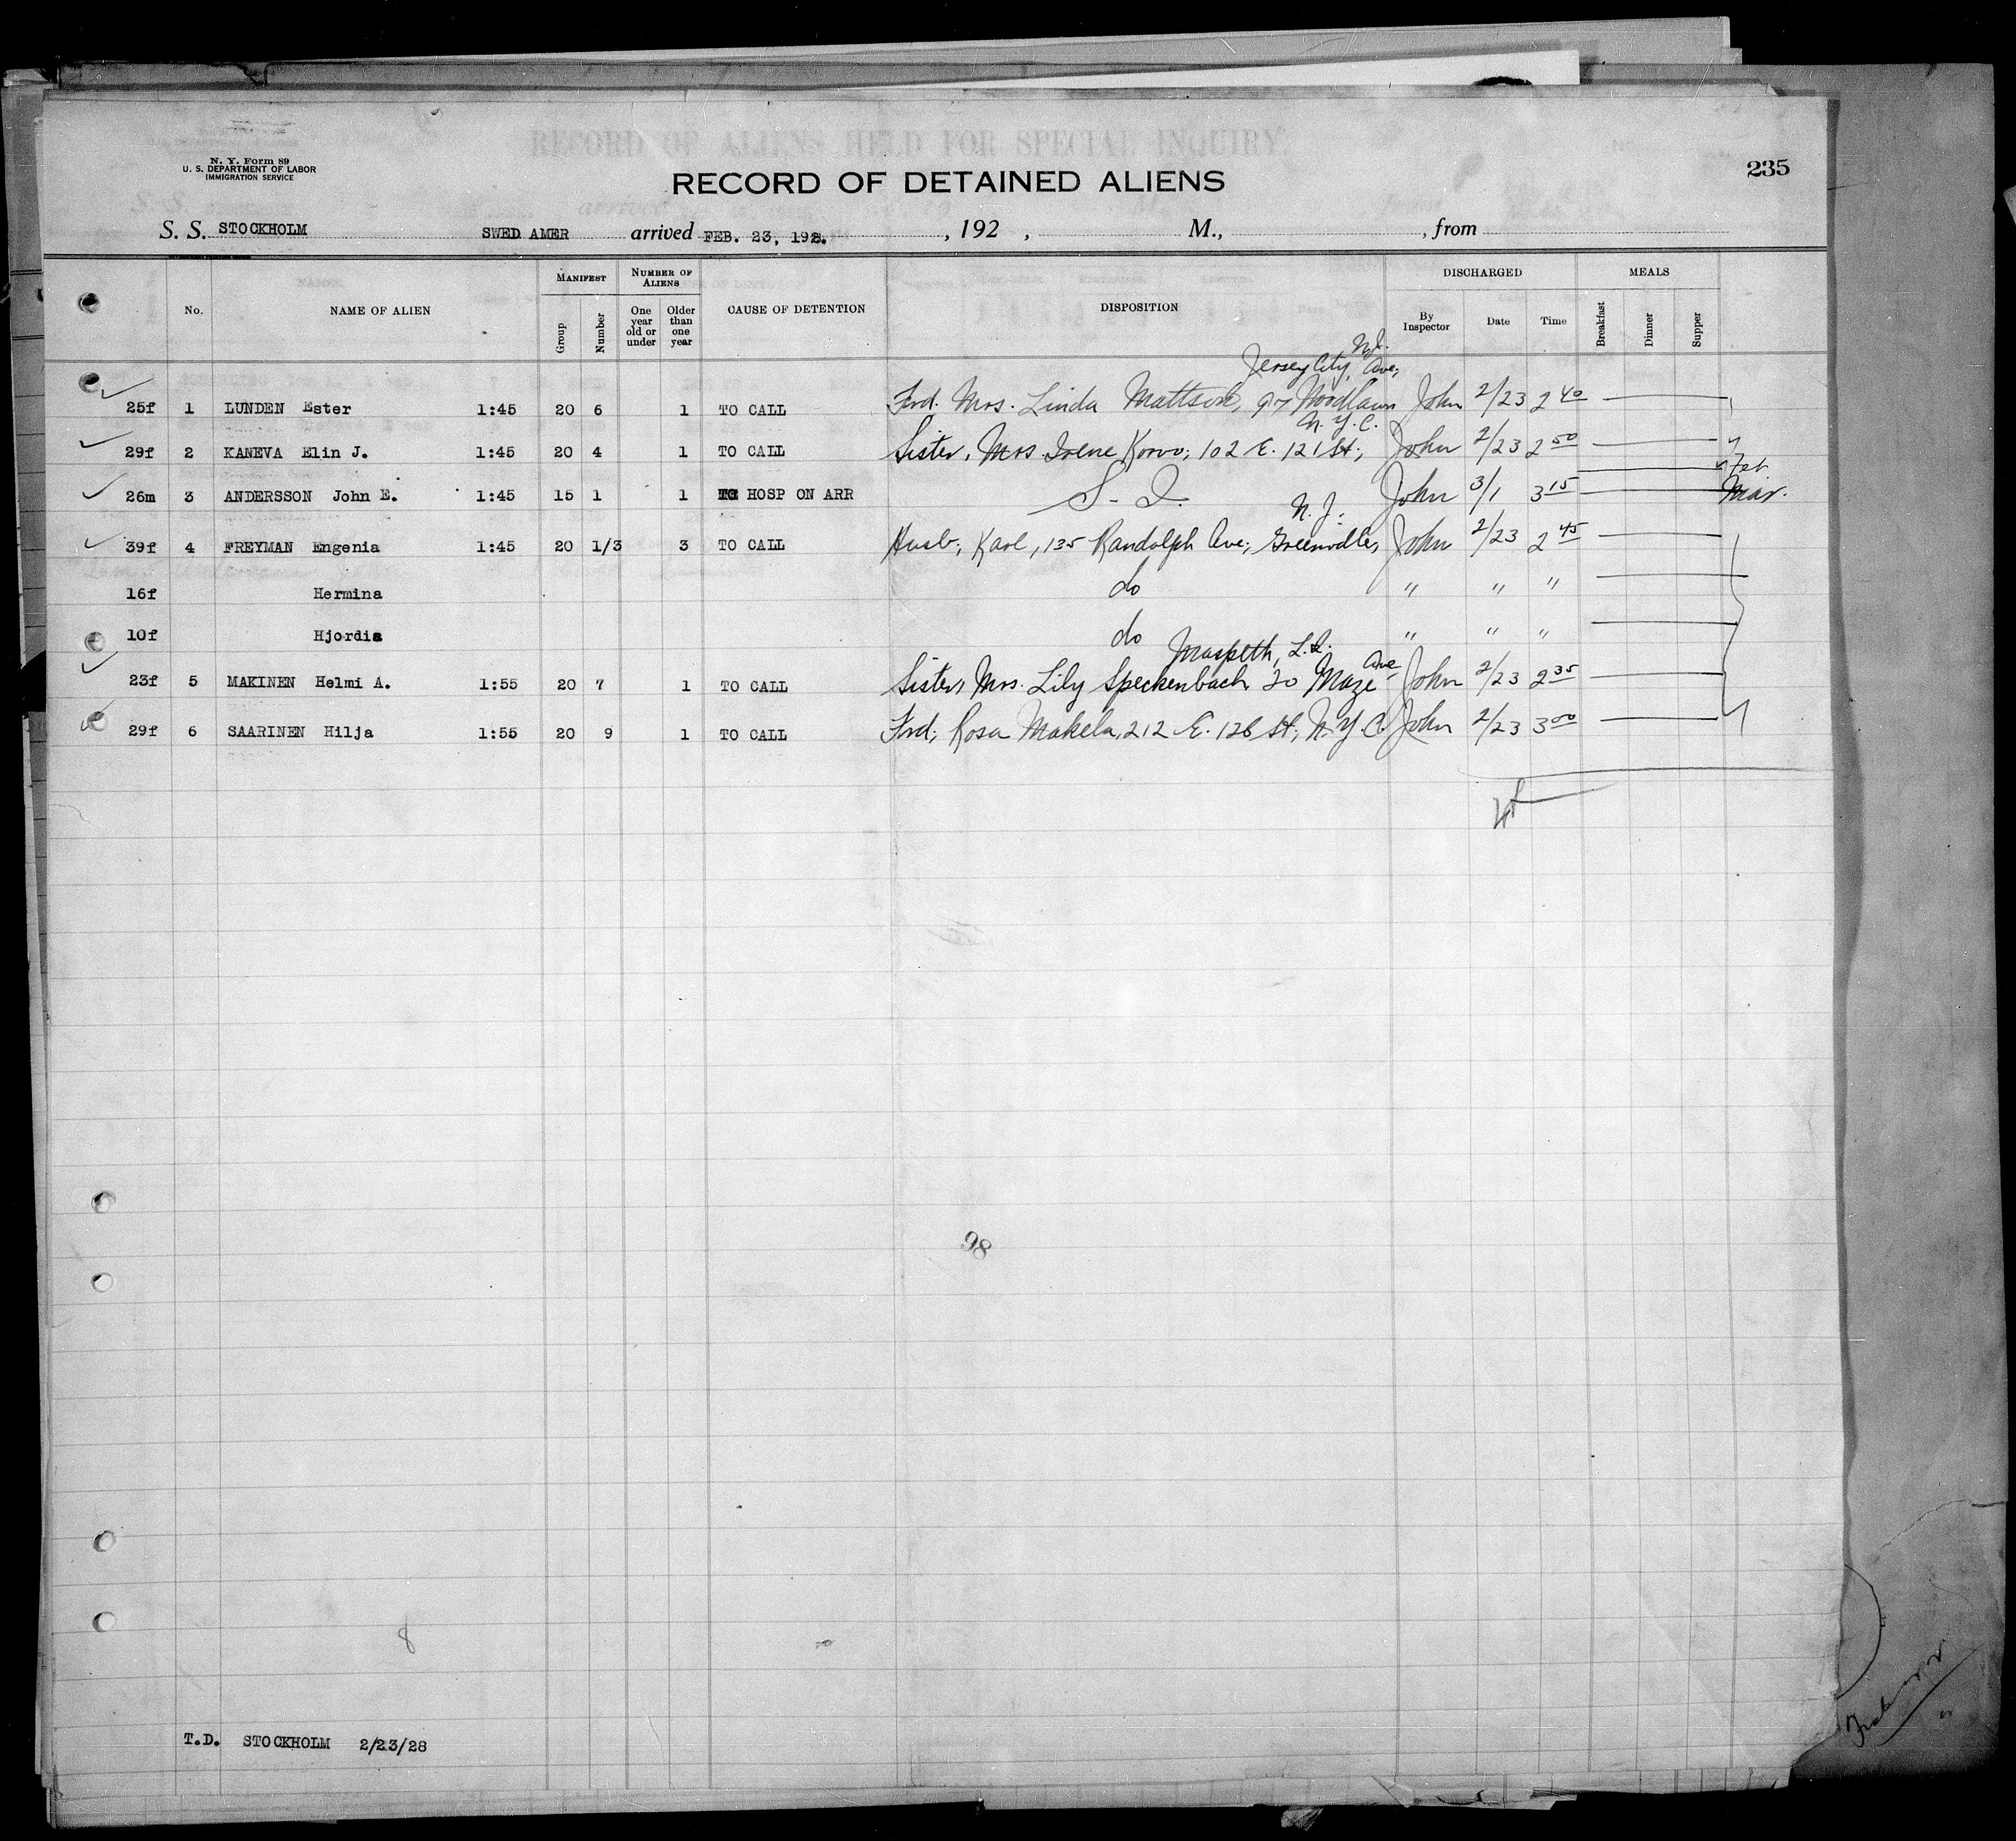 RECORD OF ALIENS HELD FOR SPECIAL INQUIRY
N. Y. Form 89
U. S. DEPARTMENT OF LABOR
IMMIGRATION SERVICE
RECORD OF DETAINED ALIENS
235
S. S. STOCKHOLM SWED AMER arrived FEB. 23, 1928. , 192 , M., , from
No. NAME OF ALIEN MANIFEST Group Number NUMBER OF ALIENS One year old or under Older than one year CAUSE OF DETENTION DISPOSITION DISCHARGED By Inspector Date Time MEALS Breakfast Dinner Supper
N.J.
Jersey City, Ave;
25f 1 LUNDEN Ester 1:45 20 6 1 TO CALL Frd. Mrs. Linda Mattson, 97 Woodlawn John 2/23 2 40
N. Y. C.
29f 2 KANEVA Elin J. 1:45 20 4 1 TO CALL Sister, Mrs Irene Korvo; 102 E. 121 St; John 2/23 2 50
Feb
26m 3 ANDERSSON John E. 1:45 15 1 1 TO HOSP ON ARR S-I. John 3/1 3 15 Mar.
N. J.
39f 4 FREYMAN Engenia 1:45 20 1/3 3 TO CALL Husb; Karl, 135 Randolph Ave; Greenville, John 2/23 2 45
16f Hermina do " " "
10f Hjordis do " " "
Maspeth, L.I.
Ave
23f 5 MAKINEN Helmi A. 1:55 20 7 1 TO CALL Sister, Mrs. Lily Speckenbach 20 Maze John 2/23 2 35
29f 6 SAARINEN Hilja 1:55 20 9 1 TO CALL Frd; Rosa Makela, 212 E. 126 St; N.Y.C. John 2/23 3 00
98
8
T.D. STOCKHOLM 2/23/28